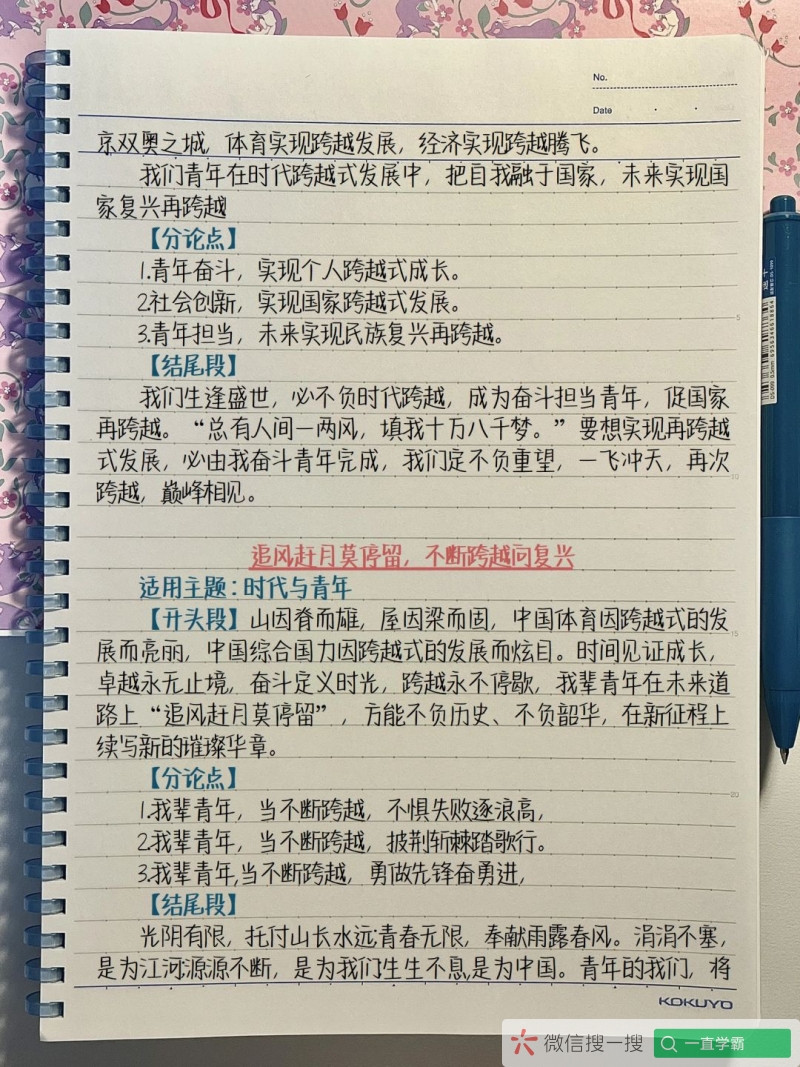 No.
Date
京双奥之城，体育实现跨越发展，经济实现跨越腾飞。
我们青年在时代跨越式发展中，把自我融于国家，未来实现国
家复兴再跨越
【分论点】
1.青年奋斗，实现个人跨越式成长。
2.社会创新，实现国家跨越式发展。
3.青年担当，未来实现民族复兴再跨越。
【结尾段】
我们生逢盛世，必不负时代跨越，成为奋斗担当青年，促国家
再跨越。“总有人间一两风，填我十万八千梦。”要想实现再跨越
式发展，必由我奋斗青年完成，我们定不负重望，一飞冲天，再次
跨越，巅峰相见。
追风赶月莫停留，不断跨越向复兴
适用主题：时代与青年
【开头段】山因脊而雄，屋因梁而固，中国体育因跨越式的发
展而亮丽，中国综合国力因跨越式的发展而炫目。时间见证成长，
卓越永无止境，奋斗定义时光，跨越永不停歇，我辈青年在未来道
路上“追风赶月莫停留”，方能不负历史、不负韶华，在新征程上
续写新的璀璨华章。
【分论点】
1.我辈青年，当不断跨越，不惧失败逐浪高，
2.我辈青年，当不断跨越，披荆斩棘踏歌行。
3.我辈青年,当不断跨越，勇做先锋奋勇进，
【结尾段】
光阴有限，托付山长水远青春无限，奉献雨露春风。涓涓不塞，
是为江河;源源不断，是为我们生生不息,是为中国。青年的我们，将
5
10
15
20
KOKUYO
微信搜一搜
一直学霸